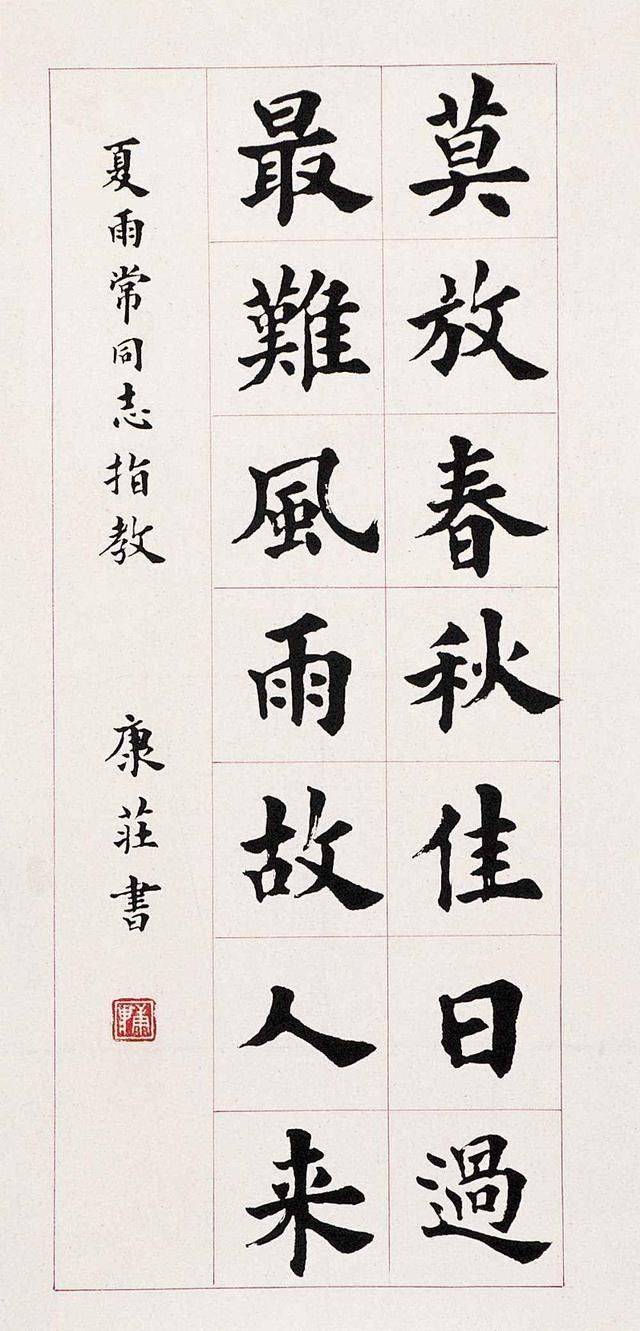 莫放春秋佳日過
最難風雨故人来
夏雨常同志指教
康莊書